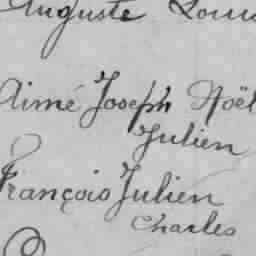 Auguste Louis
Aimé Joseph Noël
Julien
François Julien
Charles